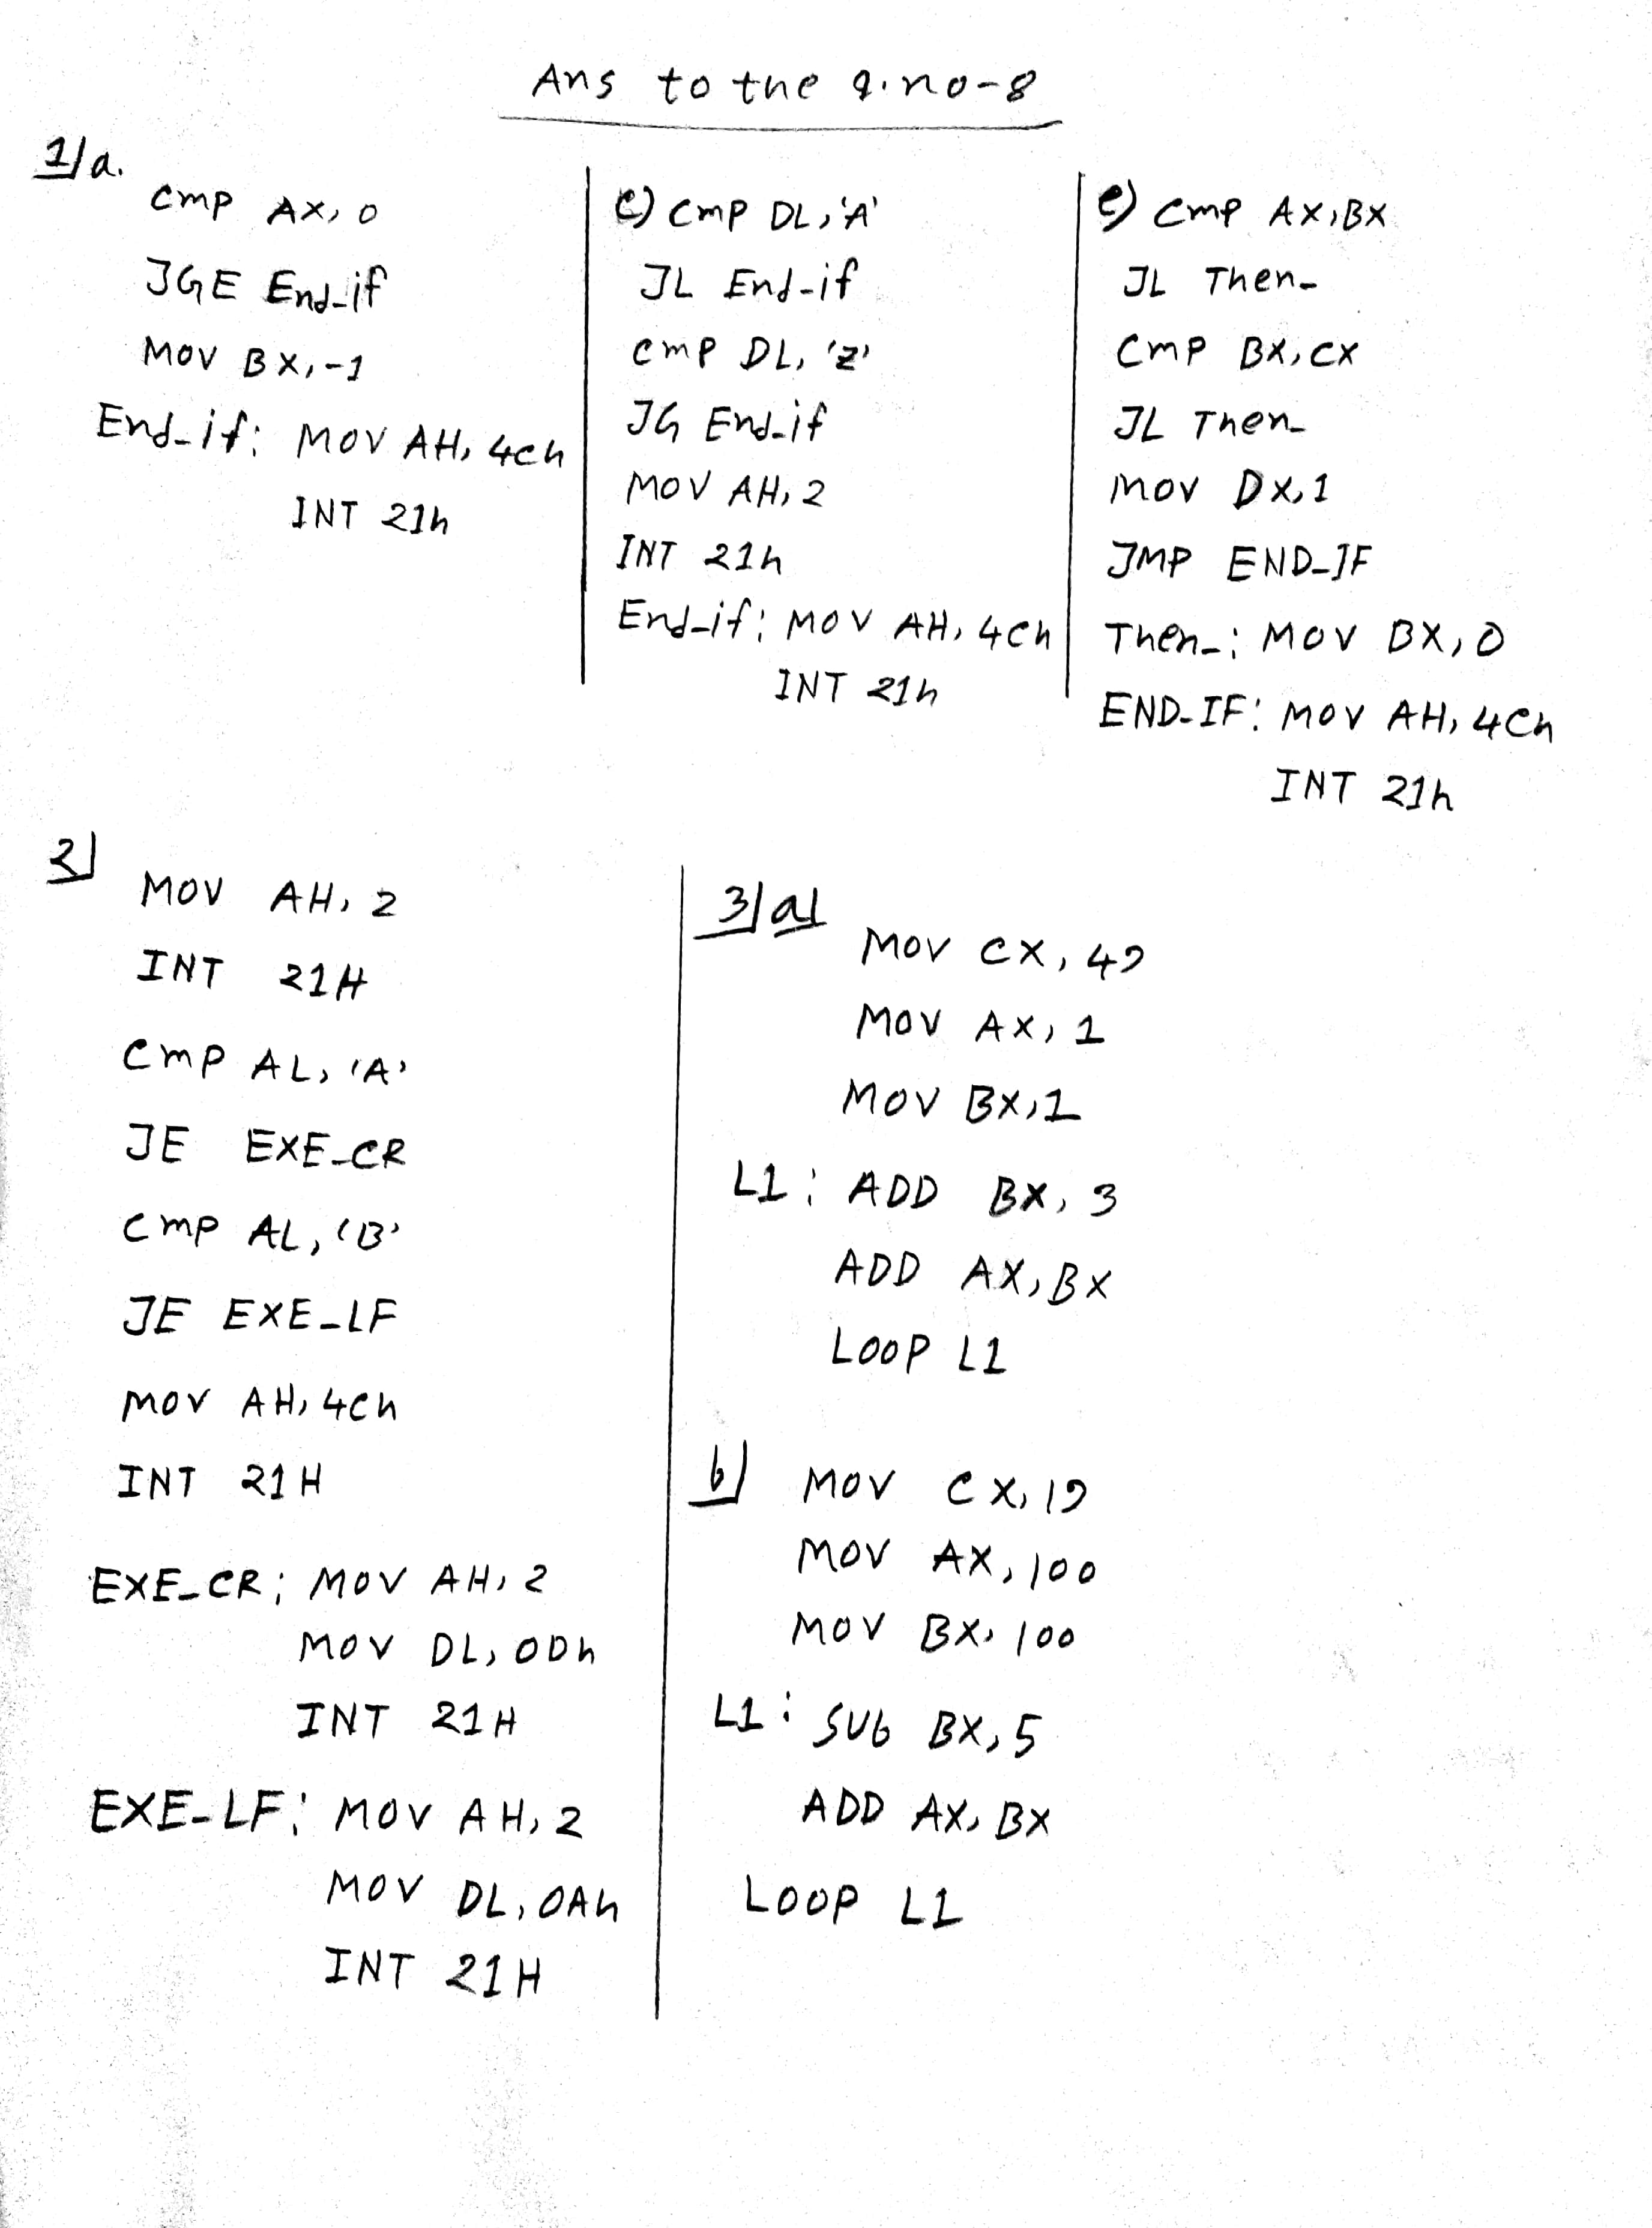 Ans to the q.no-8
1/a.
CMP AX, 0
JGE End_if
MOV BX, -1
End_if: MOV AH, 4ch
INT 21h
c) CMP DL, 'A'
JL End-if
CMP DL, 'Z'
JG End-if
MOV AH, 2
INT 21h
End-if: MOV AH, 4ch
INT 21h
e) CMP AX, BX
JL Then_
CMP BX, CX
JL Then_
MOV DX, 1
JMP END_IF
Then_: MOV BX, 0
END-IF: MOV AH, 4Ch
INT 21h
2)
MOV AH, 2
INT 21H
CMP AL, 'A'
JE EXE_CR
CMP AL, 'B'
JE EXE_LF
MOV AH, 4ch
INT 21H
EXE_CR: MOV AH, 2
MOV DL, 0Dh
INT 21H
EXE_LF: MOV AH, 2
MOV DL, 0Ah
INT 21H
3/a)
MOV CX, 49
MOV AX, 1
MOV BX, 1
L1: ADD BX, 3
ADD AX, BX
LOOP L1
b) MOV CX, 19
MOV AX, 100
MOV BX, 100
L1: SUb BX, 5
ADD AX, BX
LOOP L1